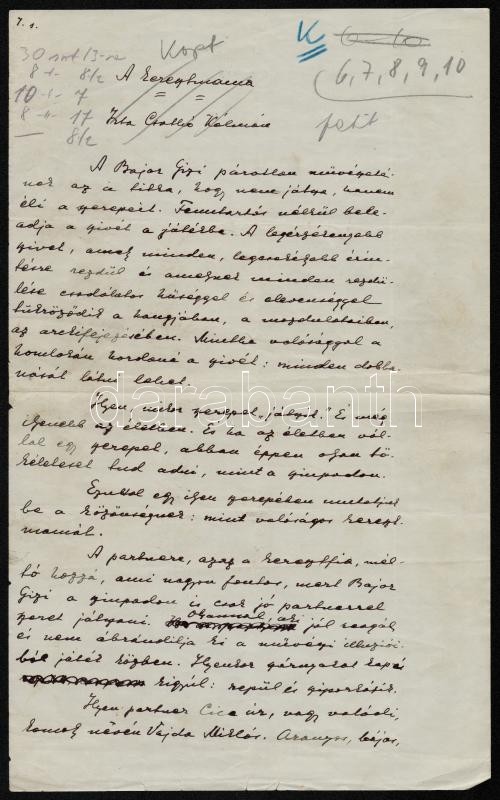 7. s.
30 sor 13-ra
Kopt
K
6, 7, 8, 9, 10
8 -s- 8/2
A keresztmama
10 -s- 7
8 -s- 17
Irta Csathó Kálmán
petit
8/2
A Bajor Gizi páratlan művészeté-
nek az a titka, hogy nem játsza, hanem
éli a szerepeit. Fenntartás nélkül bele-
adja a szivét a játékba. A legérzékenyebb
szivet, amely minden, legcsekélyebb érin-
tésre rezdül és amelynek minden rezdü-
lése csodálatos hűséggel és elevenséggel
tükröződik a hangjában, a mozdulataiban,
az arckifejezésében. Mintha valósággal a
homlokán hordaná a szivét: minden dobba-
nását látni lehet.
Ilyen, mikor szerepet játszik. És még
ilyenebb az életben. És ha az életben vál-
lal egy szerepet, abban éppen olyan tö-
kéleteset tud adni, mint a szinpadon.
Ezuttal egy ilyen szerepében mutatjuk
be a közönségnek: mint valóságos kereszt-
mamát.
A partnere, azaz a keresztfia, mél-
tó hozzá, ami nagyon fontos, mert Bajor
Gizi a szinpadon is csak jó partnerrel
szeret játszani. Olyannal, aki jól reagál
és nem ábrándítja ki a művészi illuziói-
ból játék közben. Ilyenkor szárnyakat kap és
repül és
Ilyen partner Cica úr, vagy valódi,
komoly nevén Vajda Miklós. Aranyos, bájos,
darabanth